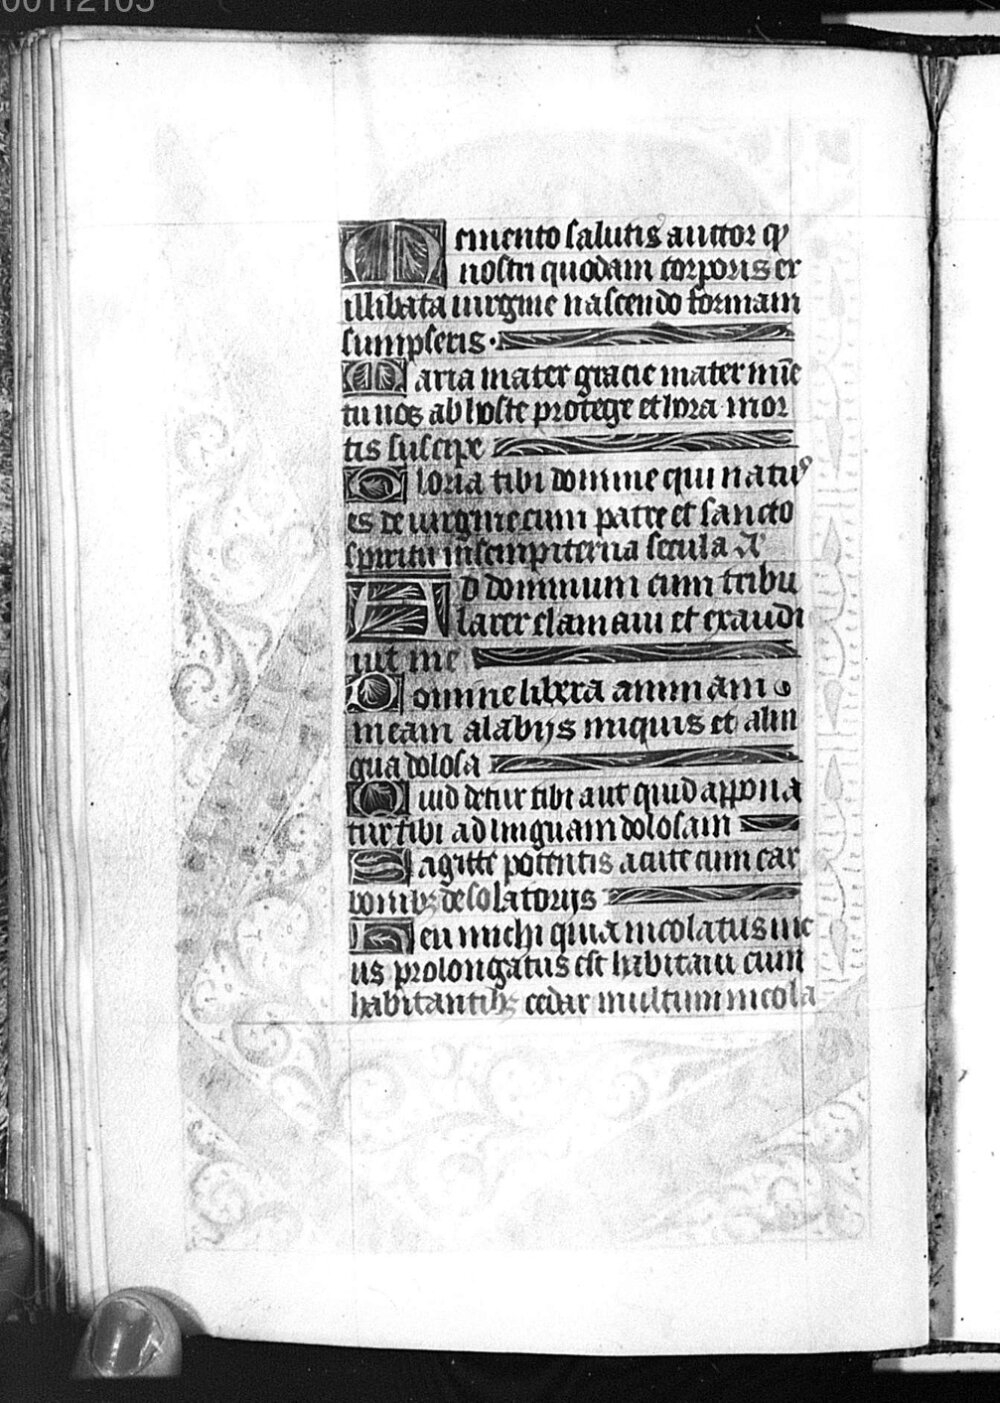 00112105
Memento salutis auctor qͥ
nostri quodam corporis ex
illibata uirgine nascendo formam
sumpseris.
Maria mater gracie mater mīe
tu nos ab hoste protege et hora mor
tis suscipe
Gloria tibi domine qui natus
es de uirgine cum patre et sancto
spiritu in sempiterna secula Añ
Ad dominum cum tribu
larer clamaui et exaudi
uit me
Domine libera animam
meam a labijs iniquis et a lin
gua dolosa
Quid detur tibi aut quid appona
tur tibi ad linguam dolosam
Sagitte potentis acute cum car
bonibꝫ desolatorijs
Heu michi quia incolatus me
us prolongatus est habitaui cum
habitantibꝫ cedar multum incola